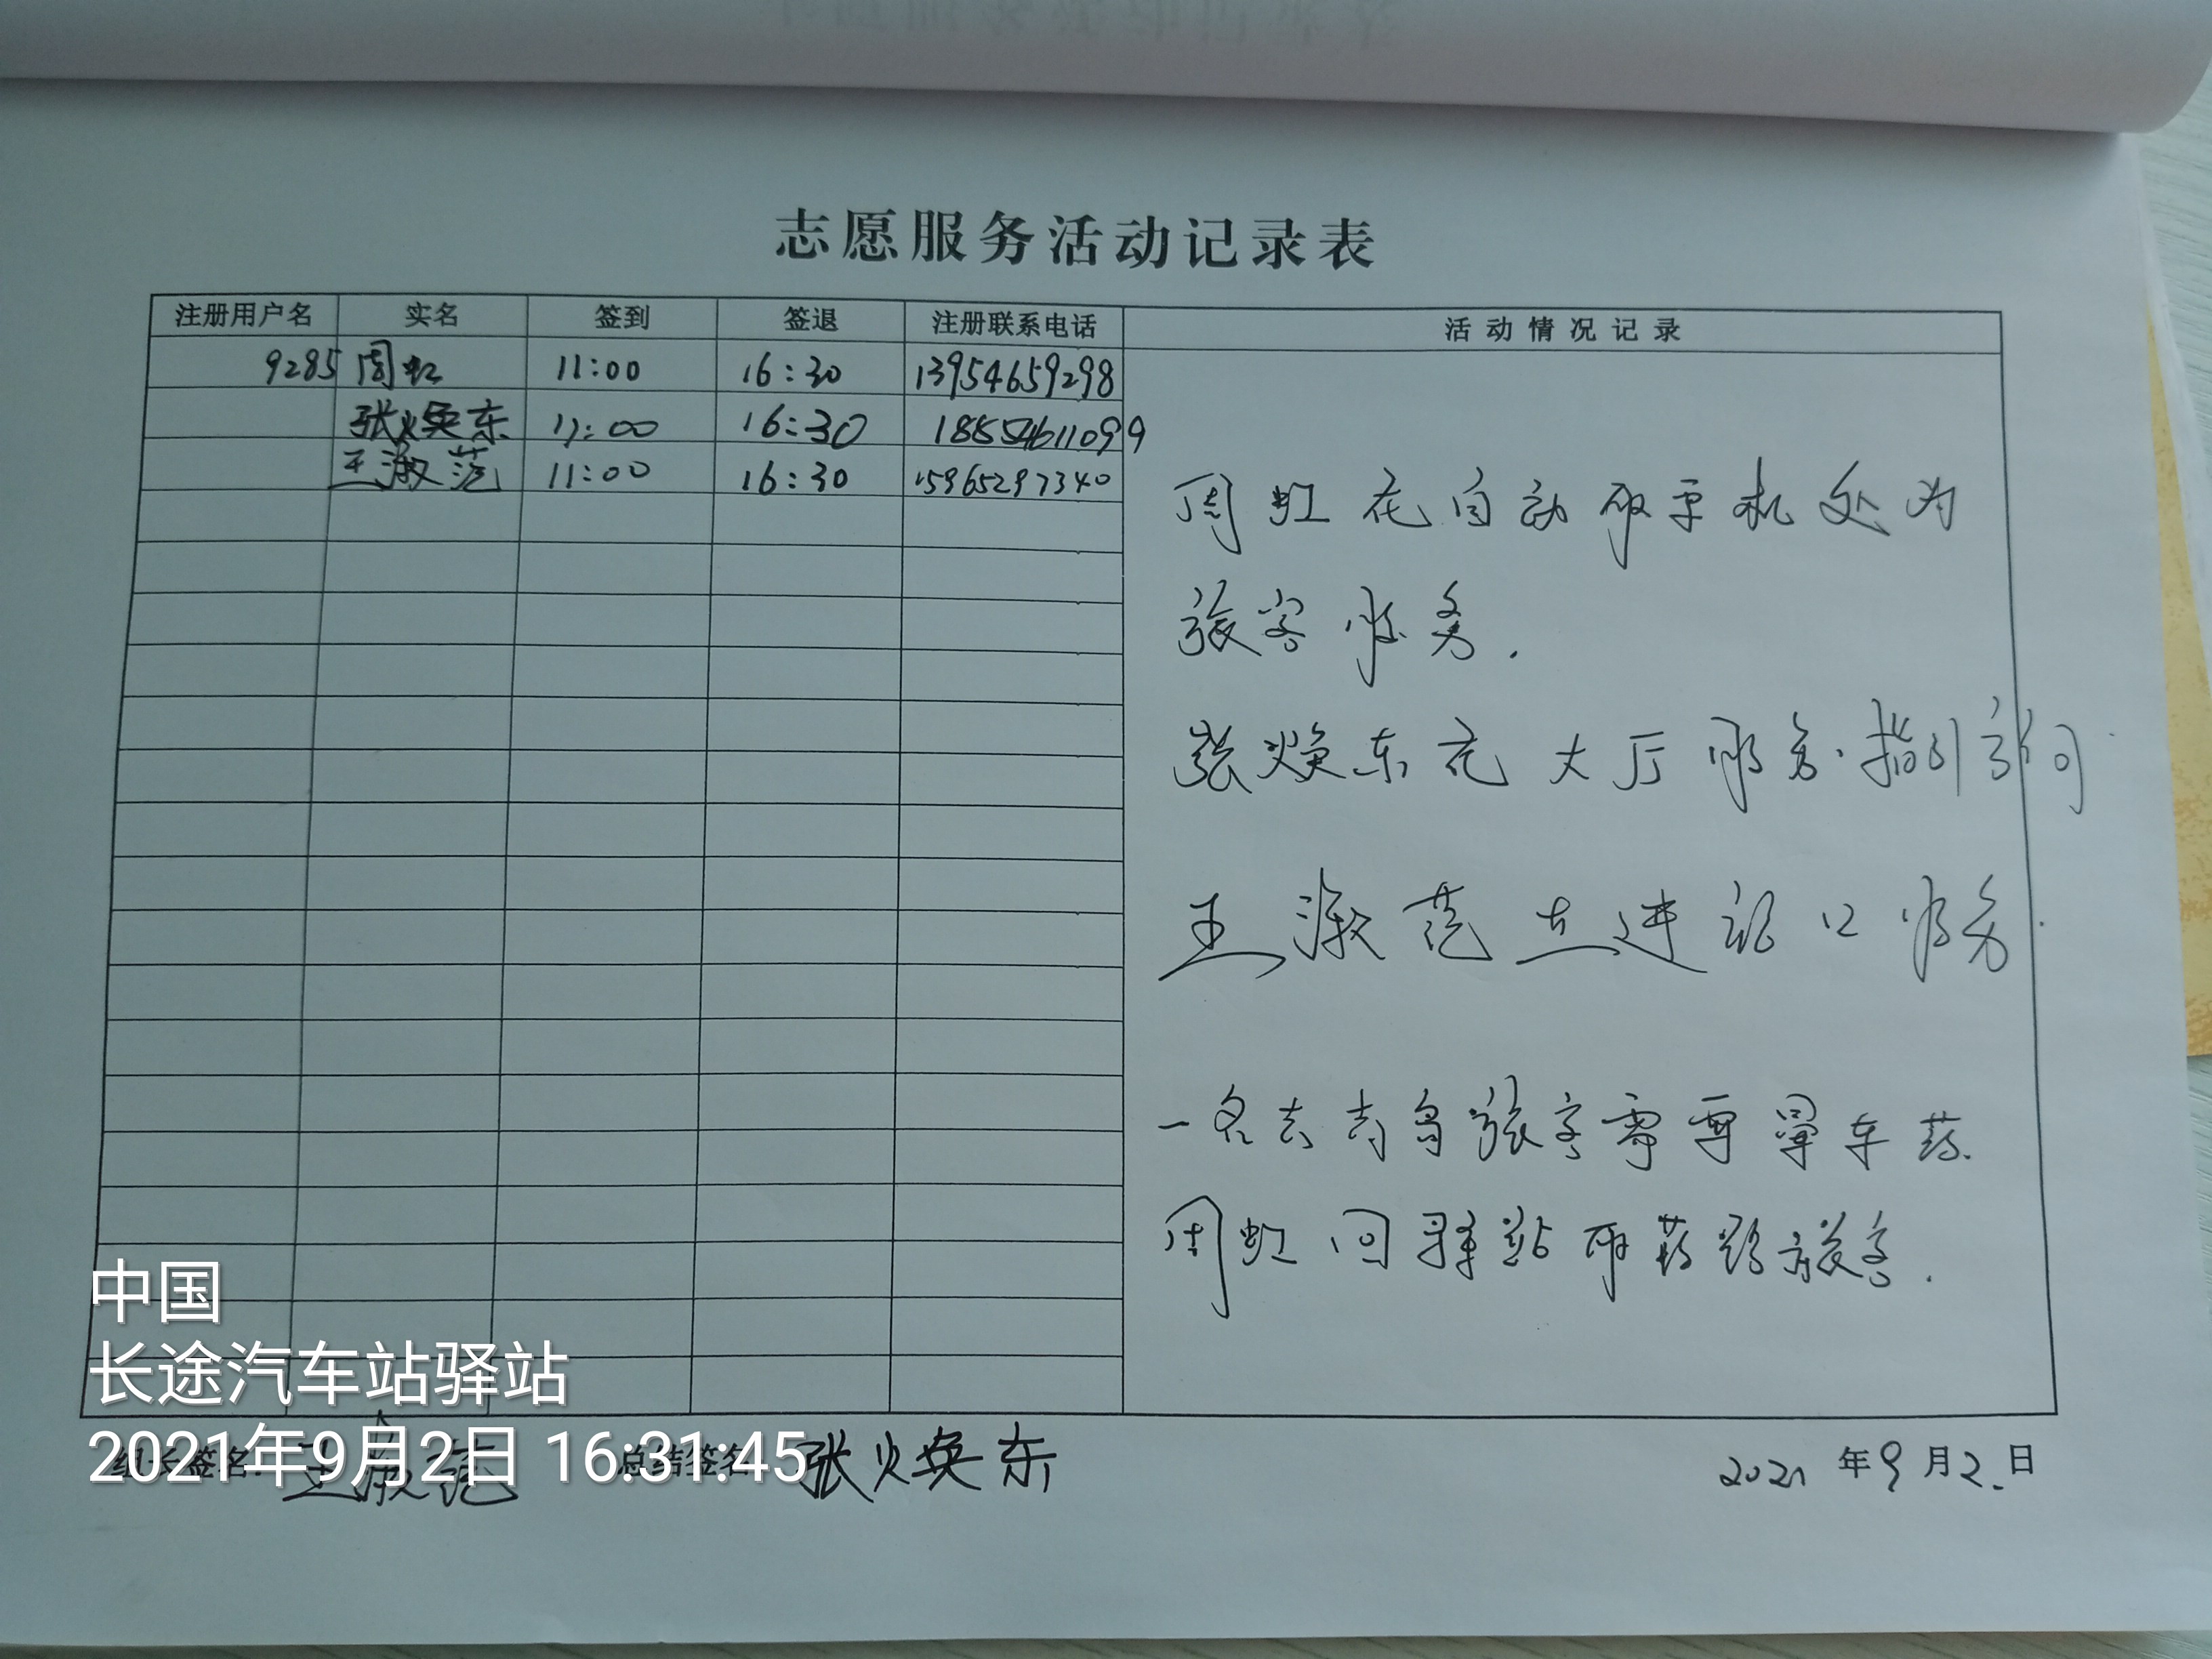 志愿服务活动记录表
注册用户名 实名 签到 签退 注册联系电话 活动情况记录
9285 周虹 11:00 16:30 13954659298
张焕东 11:00 16:30 18554611099
王淑范 11:00 16:30 15965297340
周虹在自动取票机处为
旅客服务.
张焕东在大厅服务.指引方向
王淑范在进站口服务.
一名去青岛旅客需要晕车药.
周虹回驿站取药给旅客.
组长签名: 王淑范 总结签名 张焕东 2021年9月2.日
中国
长途汽车站驿站
2021年9月2日 16:31:45